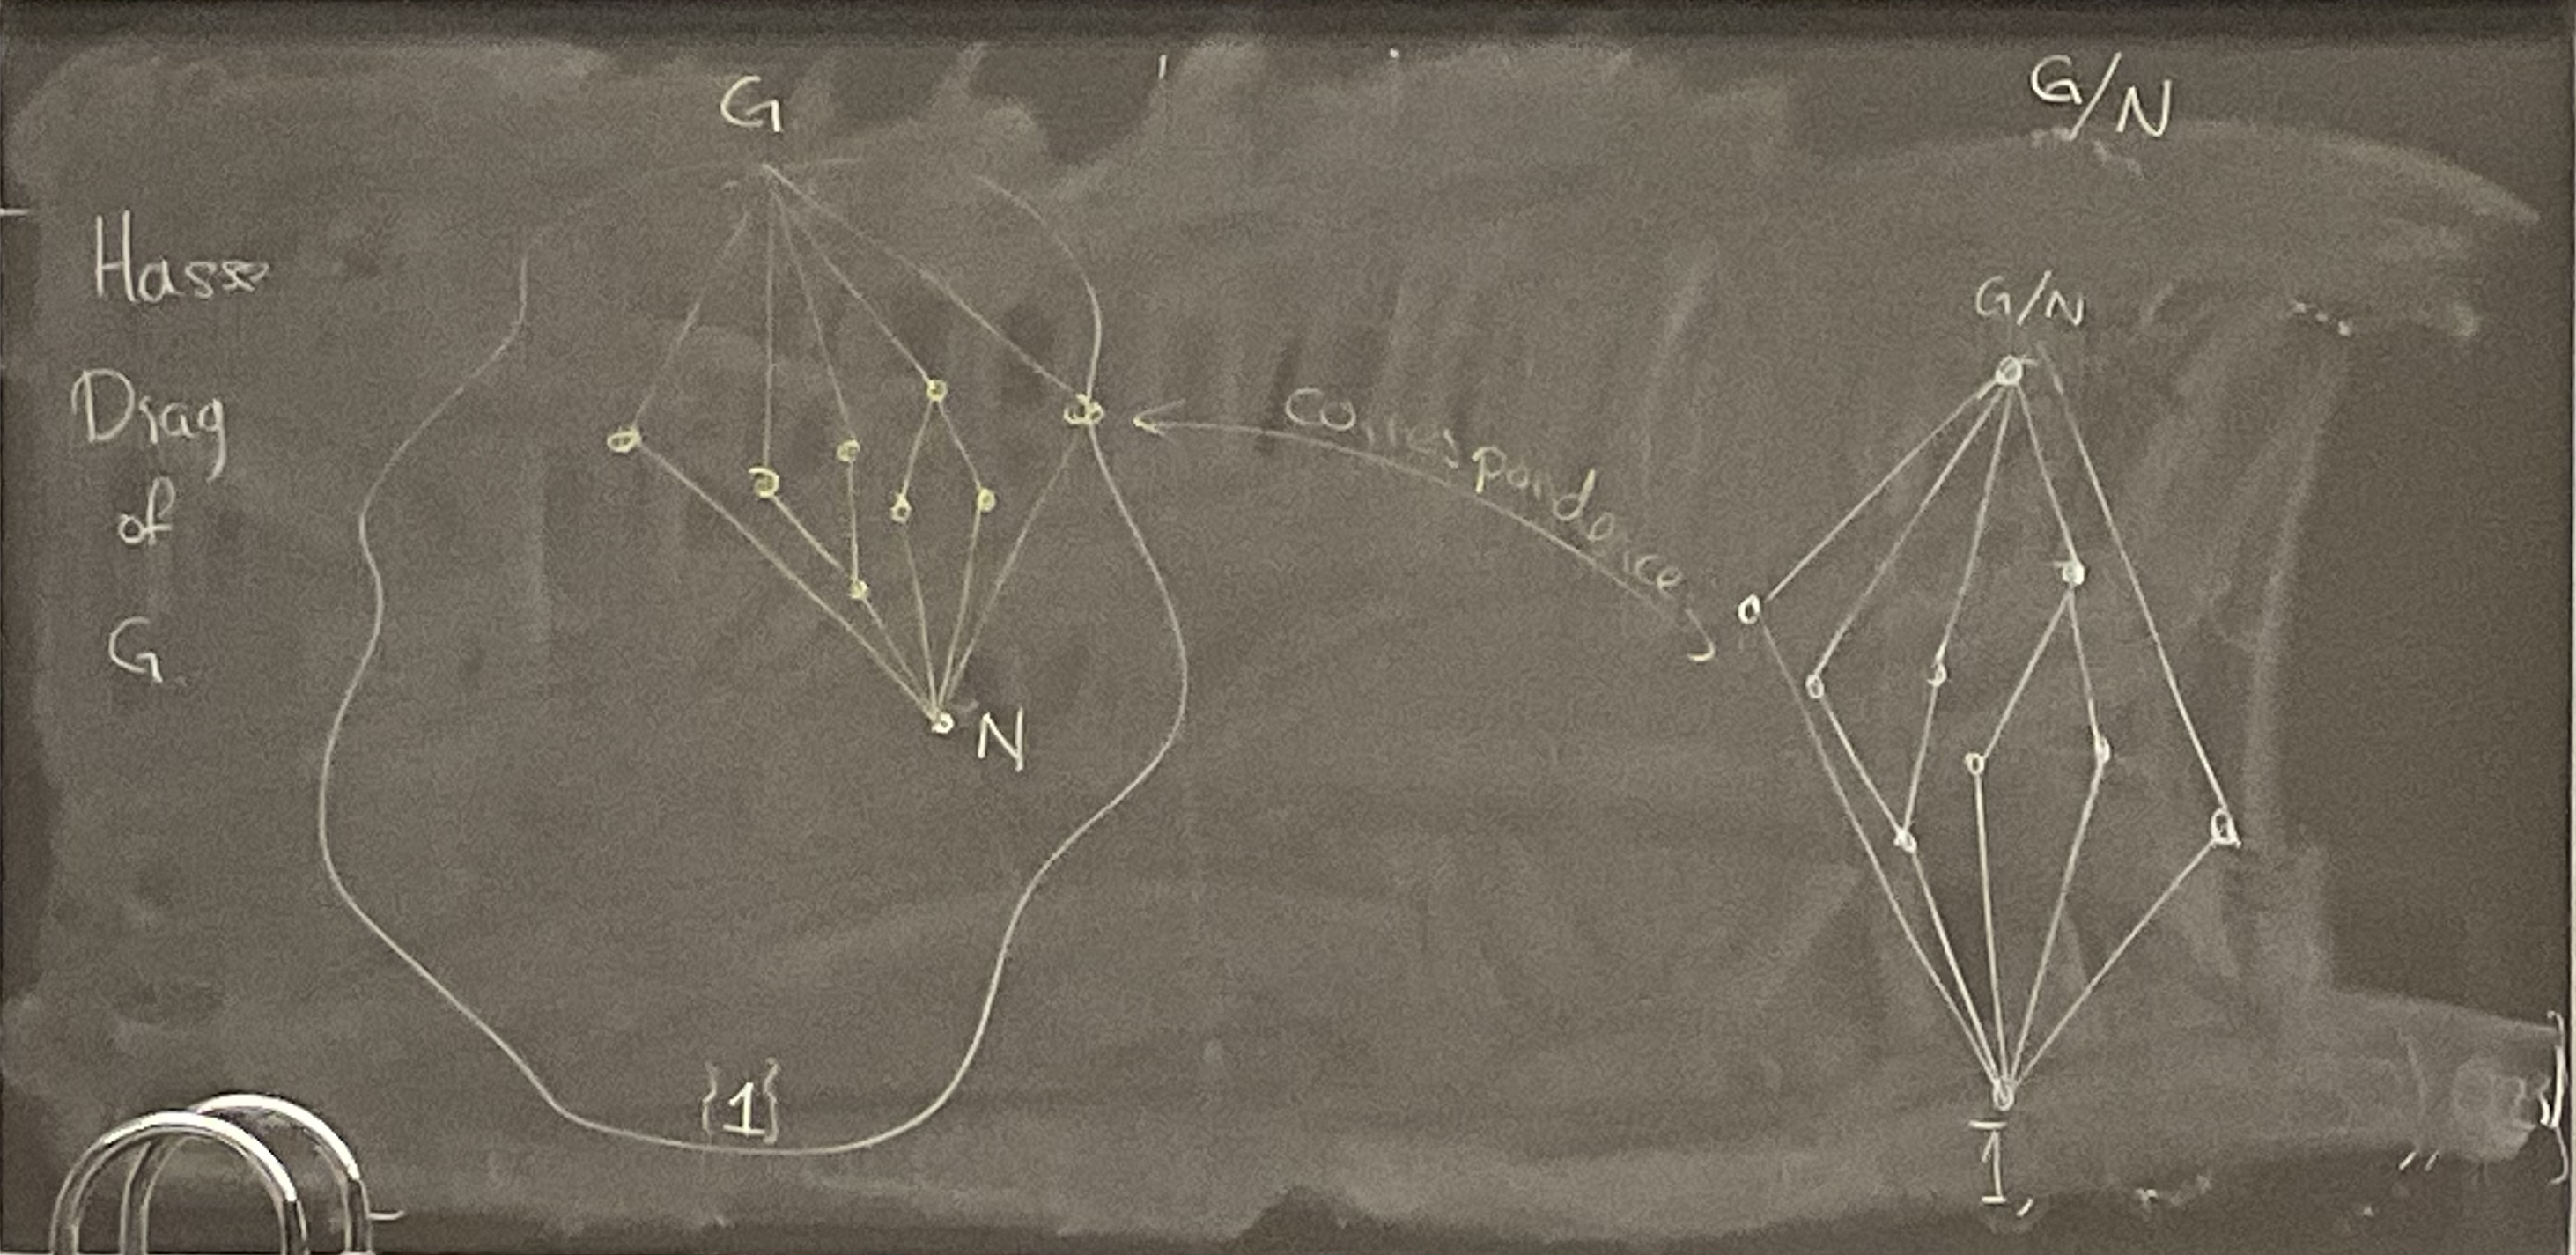 G
G/N
Hasse
Diag
of
G
G/N
Correspondence
N
{1}
1